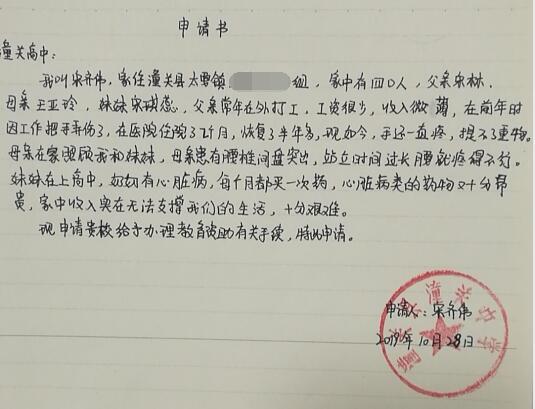 申请书
潼关高中：
我叫宋齐伟，家住潼关县太要镇 组，家中有四口人，父亲宋林，
母亲王亚玲，妹妹宋琪蕊，父亲常年在外打工，工资很少，收入微薄，在前年时
因工作把手弄伤了，在医院住院了2个月，恢复了半年多，现如今，手还一直疼，提不了重物。
母亲在家照顾我和妹妹，母亲患有腰椎间盘突出，站立时间过长腰就疼得不行。
妹妹在上高中，奶奶有心脏病，每个月都买一次药，心脏病类的药物又十分昂
贵，家中收入实在无法支撑我们的生活，十分艰难。
现申请贵校给予办理教育资助有关手续，特此申请。
申请人：宋齐伟
2019年10月28日
潼关县潼关 中学